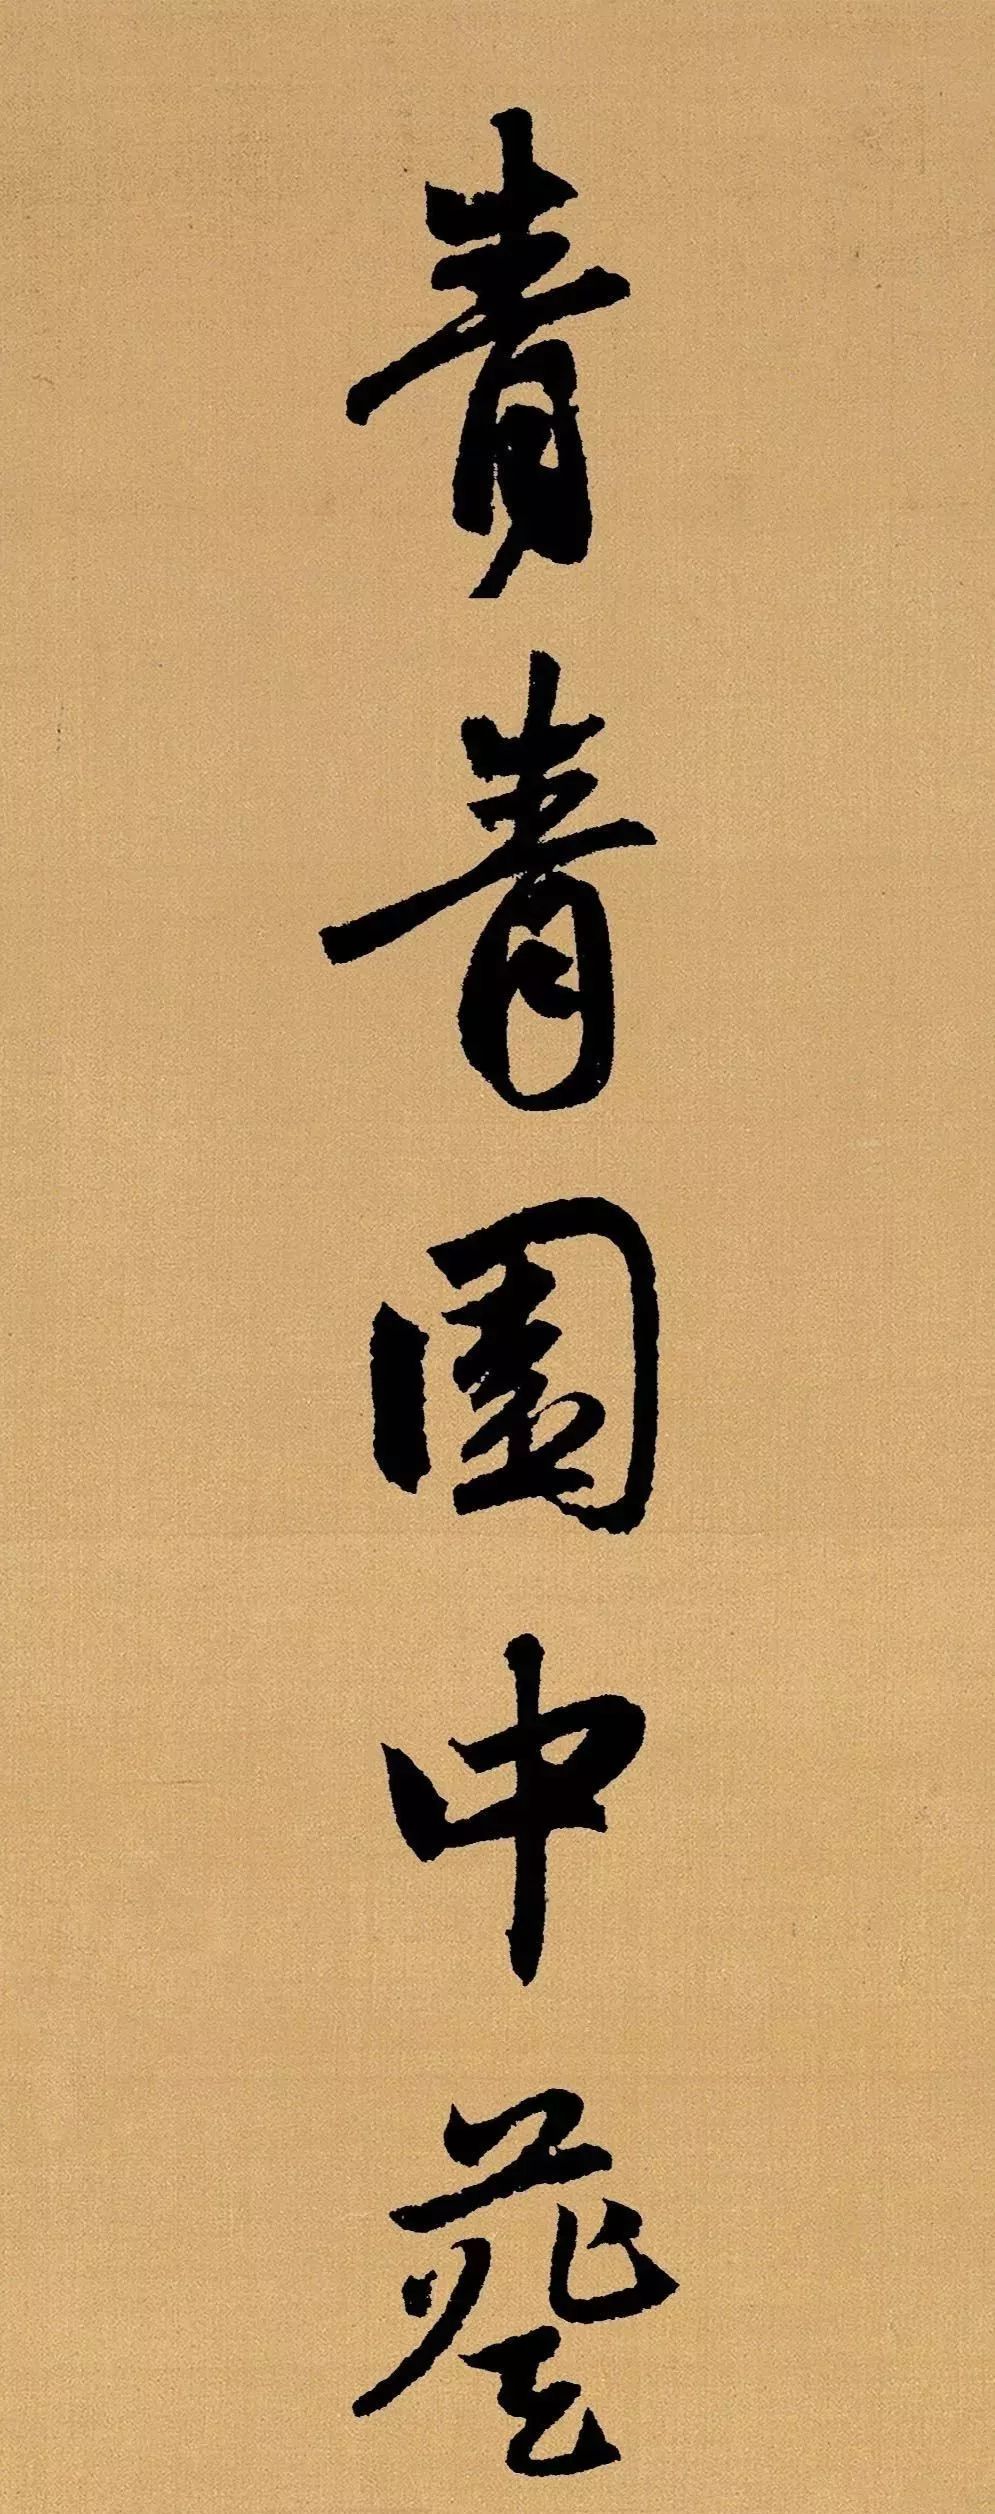 青青園中葵